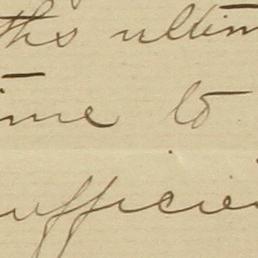 ths ultim
ime to
ufficie